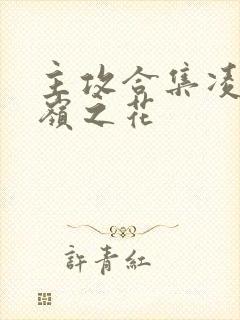 主攻合集凌
嶺之花
許青紅